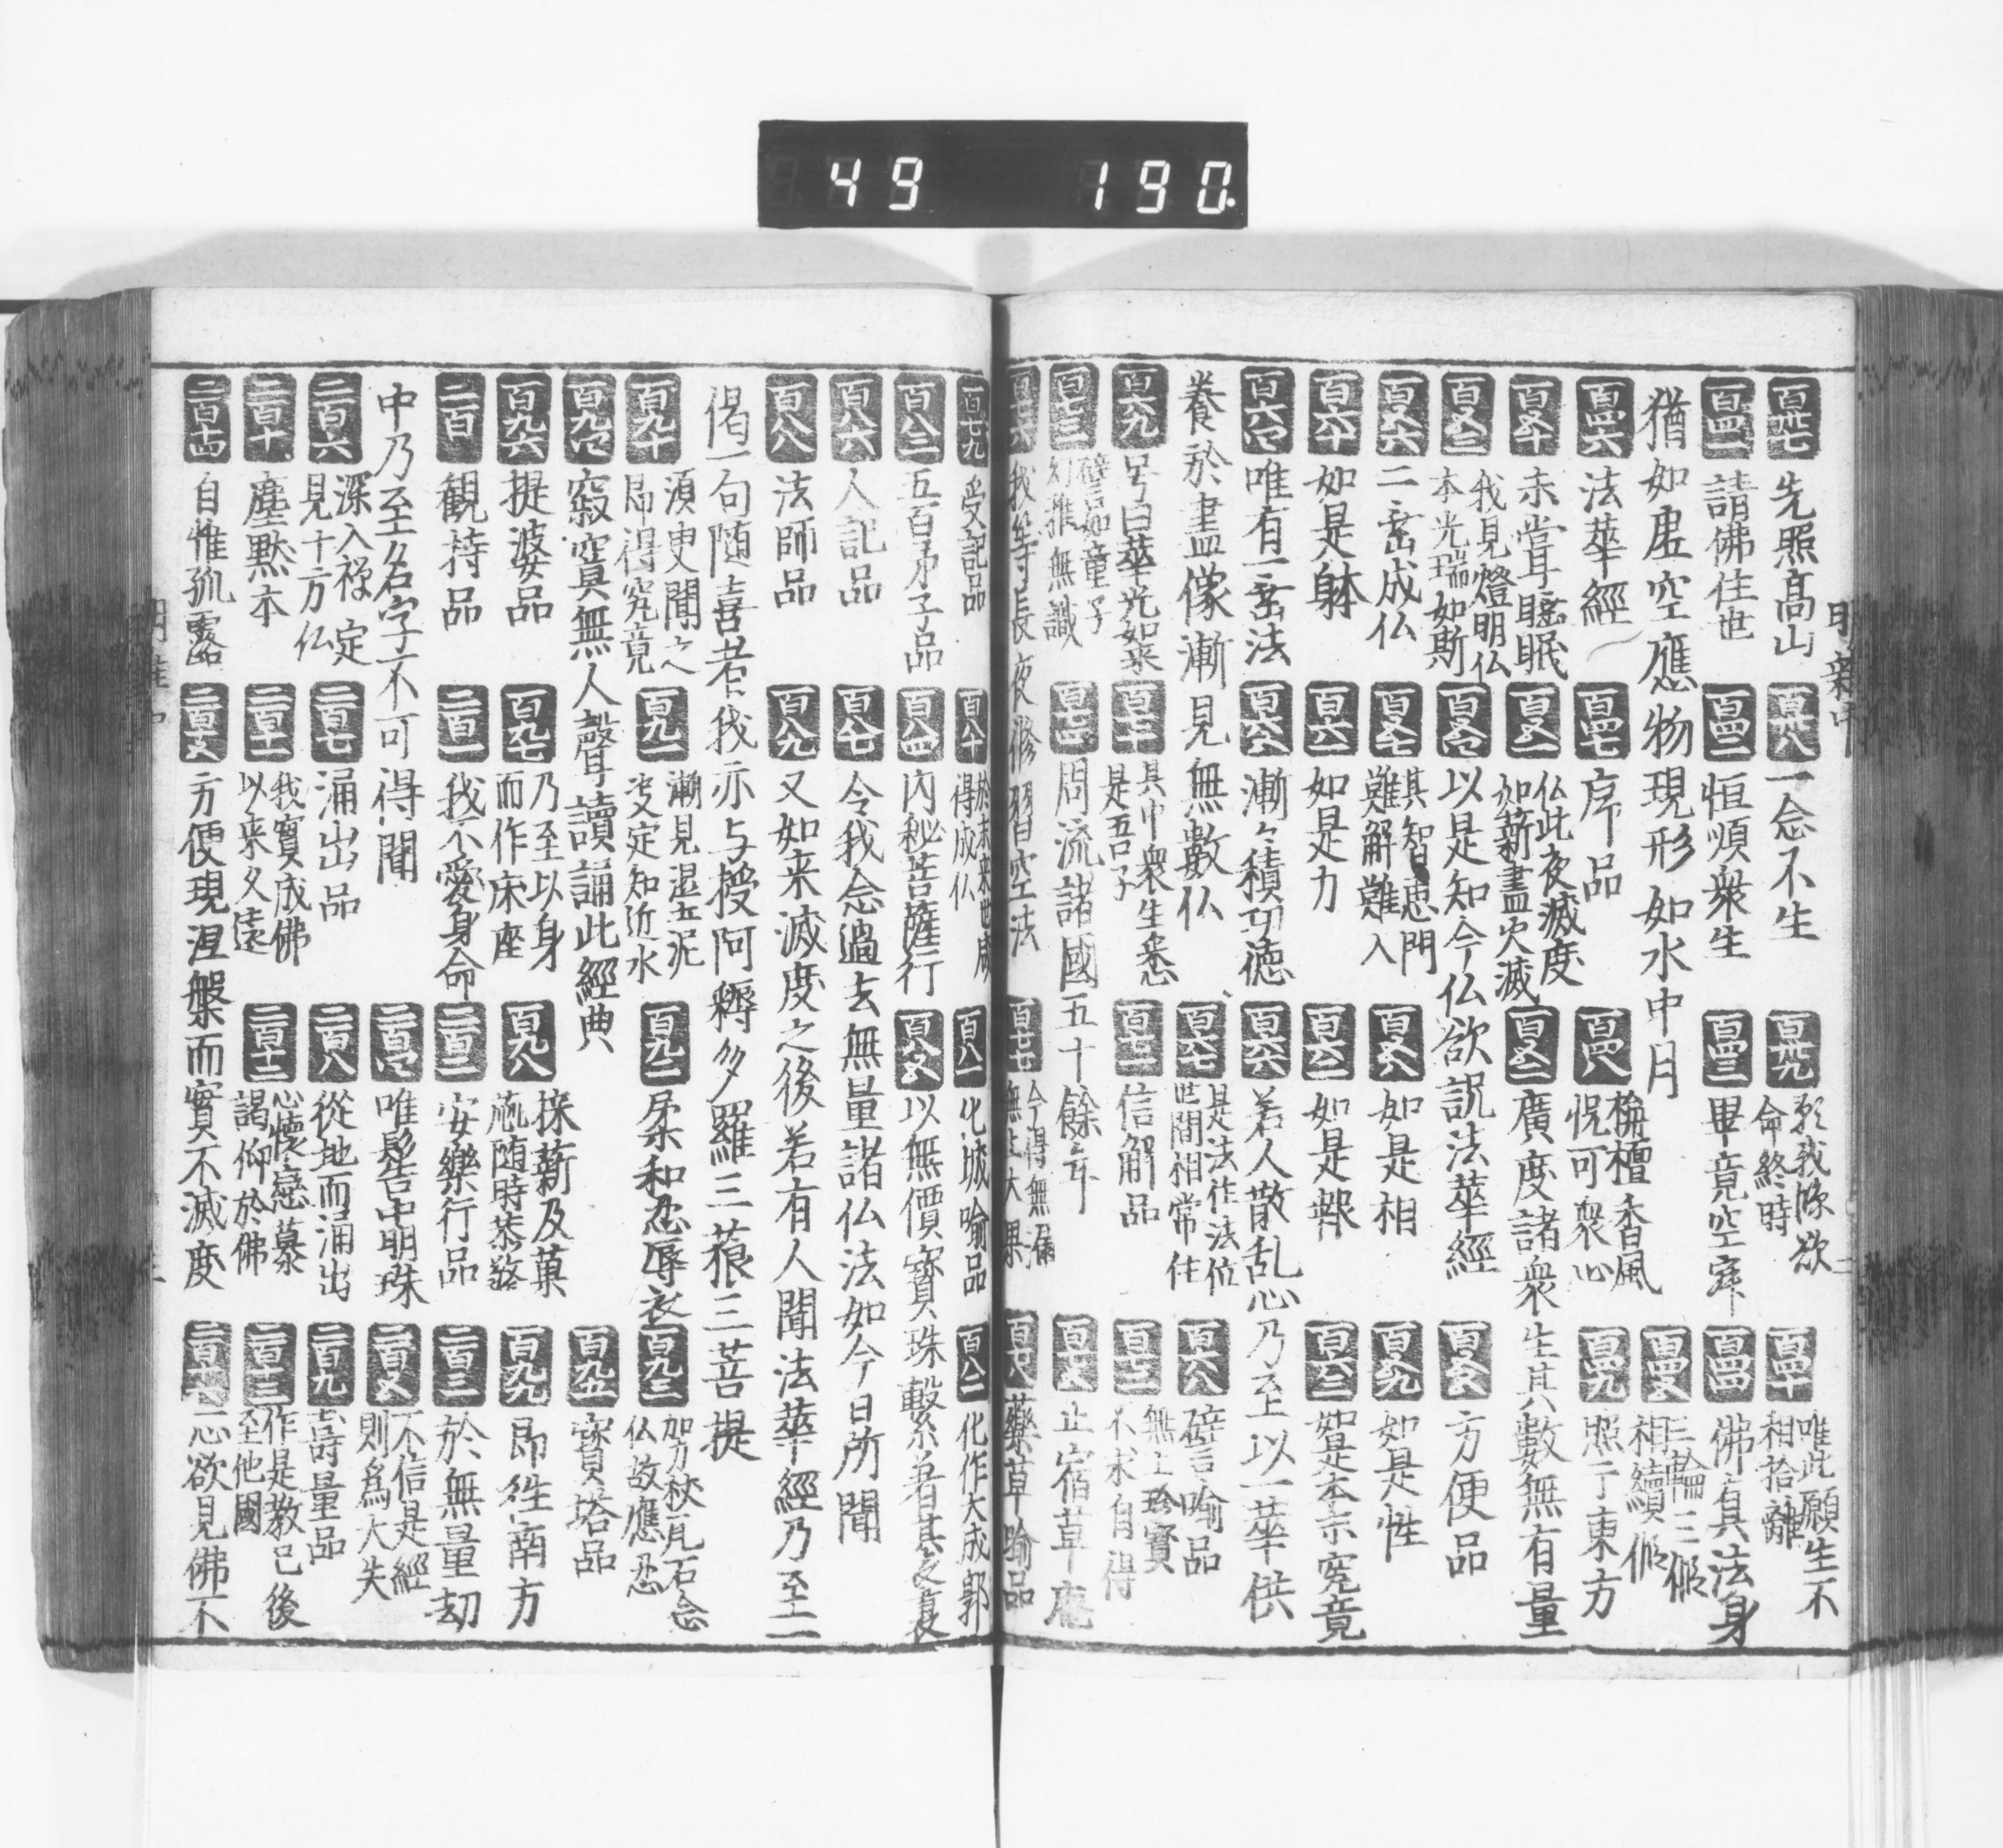 49 190
百卅七 先照高山 百卅八 一念不生 百卅九 命終時 百四十 唯此願生不相捨離
百四一 請佛住世 百四二 恒順衆生 百四三 畢竟空寂 百四四 佛有真法身
猶如虚空應物現形如水中月 百四五 三輪三假相續假
百四六 法華經 百四七 序品 百四八 栴檀香風悦可衆心 百四九 照于東方
百五十 未嘗睡眠 百五一 仏此夜滅度如薪盡火滅 百五二 廣度諸衆生其數無有量
百五三 我見燈明仏本光瑞如斯 百五四 以是知今仏欲説法華經 百五五 方便品
百五六 二乗成仏 百五七 其智恵門難解難入 百五八 如是相 百五九 如是性
百六十 如是躰 百六一 如是力 百六二 如是報 百六三 如是本末究竟
百六四 唯有一乗法 百六五 漸々積功徳 百六六 若人散乱心乃至以一華供
養於畫像漸見無數仏 百六七 是法住法位世間相常住 百六八 譬喩品
百六九 号曰華光如来 百七十 其中衆生悉是吾子 百七一 信解品 百七二 無上珍寶不求自得
百七三 譬如童子幼稚無識 百七四 周流諸國五十餘年 百七五 止宿草庵
百七六 我等長夜修習空法 百七七 今得無漏無上大果 百七八 藥草喩品
百七九 受記品 百八十 於未来世咸得成仏 百八一 化城喩品 百八二 化作大城郭
百八三 五百弟子品 百八四 内秘菩薩行 百八五 以無價寳珠繫著其衣裏
百八六 人記品 百八七 令我念過去無量諸仏法如今日所聞
百八八 法師品 百八九 又如来滅度之後若有人聞法華經乃至一
偈一句随喜者我亦与授阿耨多羅三藐三菩提
百九十 須臾聞之即得究竟 百九一 漸見湿土泥决定知近水 百九二 柔和忍辱衣 百九三 加刀杖瓦石念仏故應忍
百九四 寂寞無人聲讀誦此經典 百九五 寳塔品
百九六 提婆品 百九七 乃至以身而作床座 百九八 採薪及菓蓏随時恭敬 百九九 即往南方
二百 観持品 二百一 我不愛身命 二百二 安樂行品 二百三 於無量劫
中乃至名字不可得聞 二百四 唯髻中明珠 二百五 不信是經則爲大失
二百六 深入禅定見十方仏 二百七 涌出品 二百八 從地而涌出 二百九 壽量品
二百十 塵黙本 二百十一 我實成佛以来久遠 二百十二 心懷戀慕謁仰於佛 二百十三 作是教已後至他國
二百十四 自惟孤露 二百十五 方便現涅槃而實不滅度 二百十六 心欲見佛不